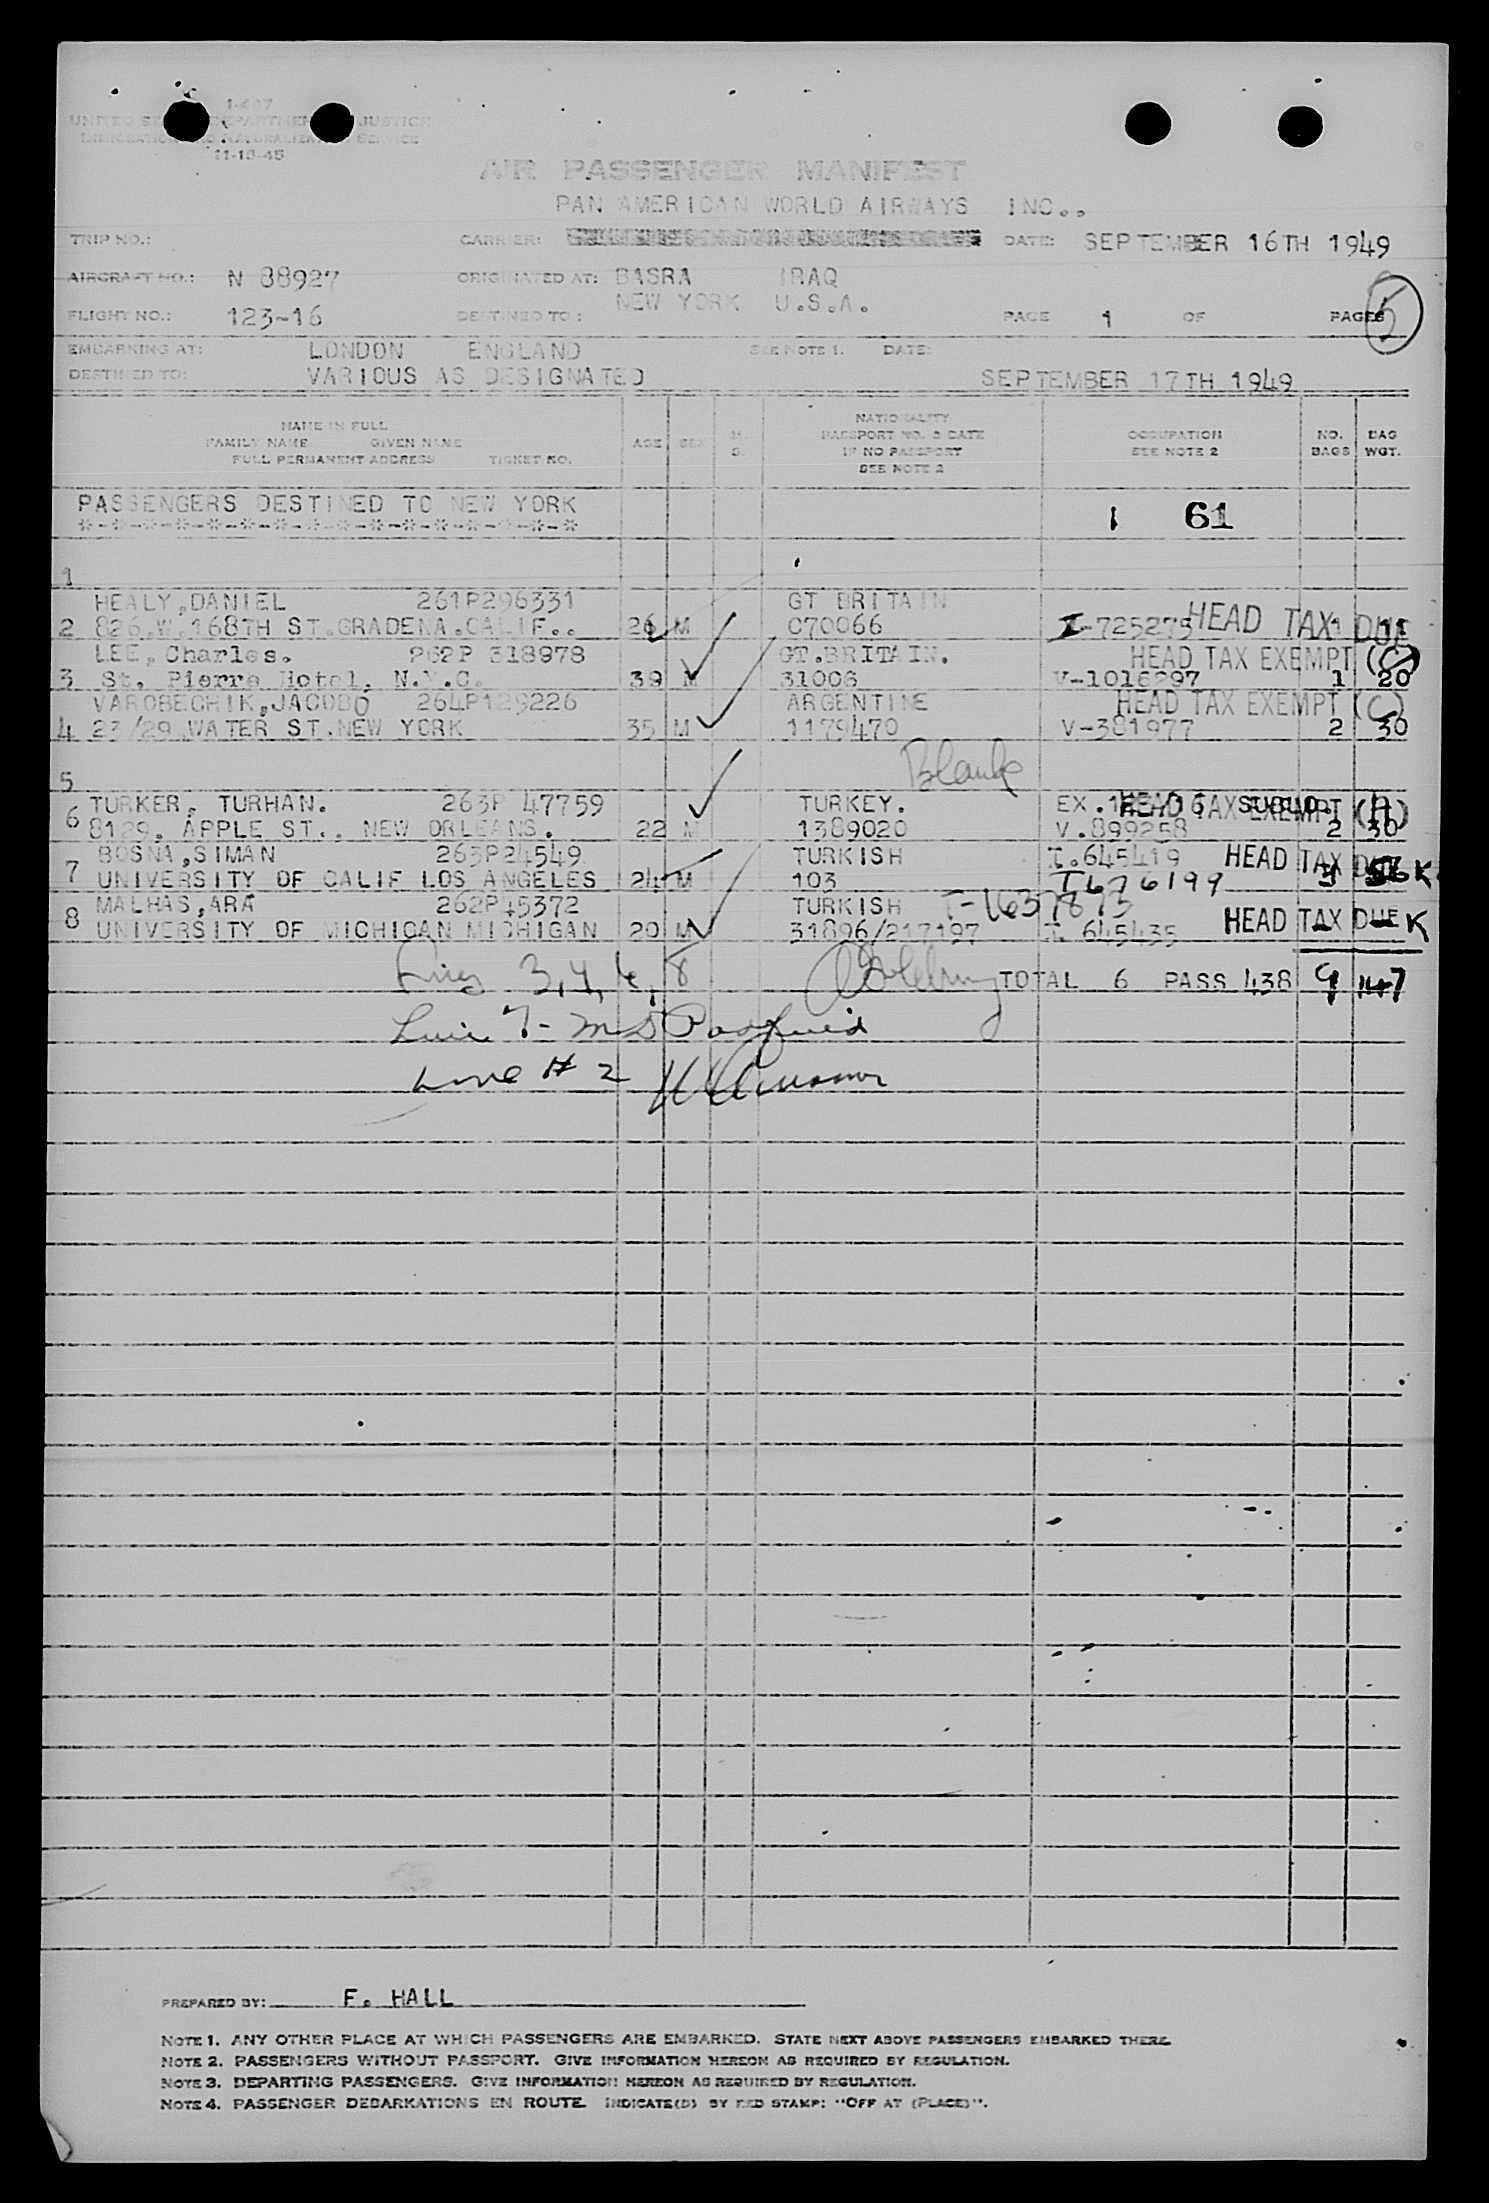 1-447
UNITED STATES DEPARTMENT OF JUSTICE
IMMIGRATION AND NATURALIZATION SERVICE
11-13-45
AIR PASSENGER MANIFEST
PAN AMERICAN WORLD AIRWAYS INC..
TRIP NO.: CARRIER: DATE: SEPTEMBER 16TH 1949
AIRCRAFT NO.: N 88927 ORIGINATED AT: BASRA IRAQ
FLIGHT NO.: 123-16 DESTINED TO: NEW YORK U.S.A. PAGE 1 OF PAGES 5
EMBARKING AT: LONDON ENGLAND SEE NOTE 1. DATE:
DESTINED TO: VARIOUS AS DESIGNATED SEPTEMBER 17TH 1949
NAME IN FULL
FAMILY NAME GIVEN NAME
FULL PERMANENT ADDRESS TICKET NO.
AGE SEX M. S.
NATIONALITY
PASSPORT NO. & DATE
IF NO PASSPORT
SEE NOTE 2
OCCUPATION
SEE NOTE 2
NO. BAGS
BAG WGT.
PASSENGERS DESTINED TO NEW YORK
*-*-*-*-*-*-*-*-*-*-*-*-*-*-*-*
1 61
1
HEALY,DANIEL 261P296331 GT BRITAIN HEAD TAX DUE
2 826.W.168TH ST.GRADENA.CALIF.. 26 M C70066 I-725275 1 11
LEE, Charles. 262P 318978 GT.BRITAIN. HEAD TAX EXEMPT (C)
3 St. Pierre Hotel. N.Y.C. 39 M 31006 V-1016297 1 20
VAROBECHIK,JACOBO 264P129226 ARGENTINE HEAD TAX EXEMPT (C)
4 23/29.WATER ST.NEW YORK 35 M 1179470 V-381977 2 30
5 Blank
6 TURKER, TURHAN. 263P 47759 TURKEY. HEAD TAX EXEMPT (H)
8129. APPLE ST., NEW ORLEANS. 22 M 1389020 V.899258 2 30
BOSNA,SIMAN 263P24549 TURKISH I.645419 HEAD TAX DUE K
7 UNIVERSITY OF CALIF LOS ANGELES 24 M 103 T676199
MALHAS,ARA 262P45372 TURKISH T-1637873
8 UNIVERSITY OF MICHIGAN MICHIGAN 20 M 31896/217197 I 645435 HEAD TAX DUE K
3, 4, 6, 8 TOTAL 6 PASS 438 9 147
Line 7 -
Line # 2
PREPARED BY: F. HALL
NOTE 1. ANY OTHER PLACE AT WHICH PASSENGERS ARE EMBARKED. STATE NEXT ABOVE PASSENGERS EMBARKED THERE.
NOTE 2. PASSENGERS WITHOUT PASSPORT. GIVE INFORMATION HEREON AS REQUIRED BY REGULATION.
NOTE 3. DEPARTING PASSENGERS. GIVE INFORMATION HEREON AS REQUIRED BY REGULATION.
NOTE 4. PASSENGER DEBARKATIONS EN ROUTE. INDICATE(D) BY RED STAMP: "OFF AT (PLACE)".